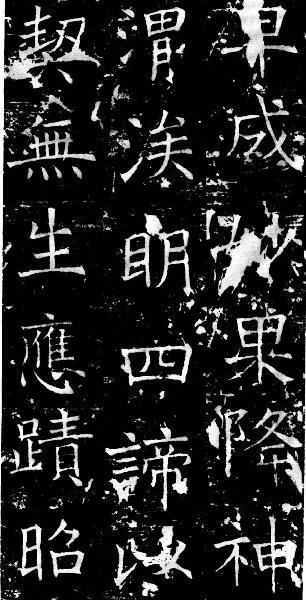 早成妙果降神
渭涘明四諦以
契無生應蹟昭